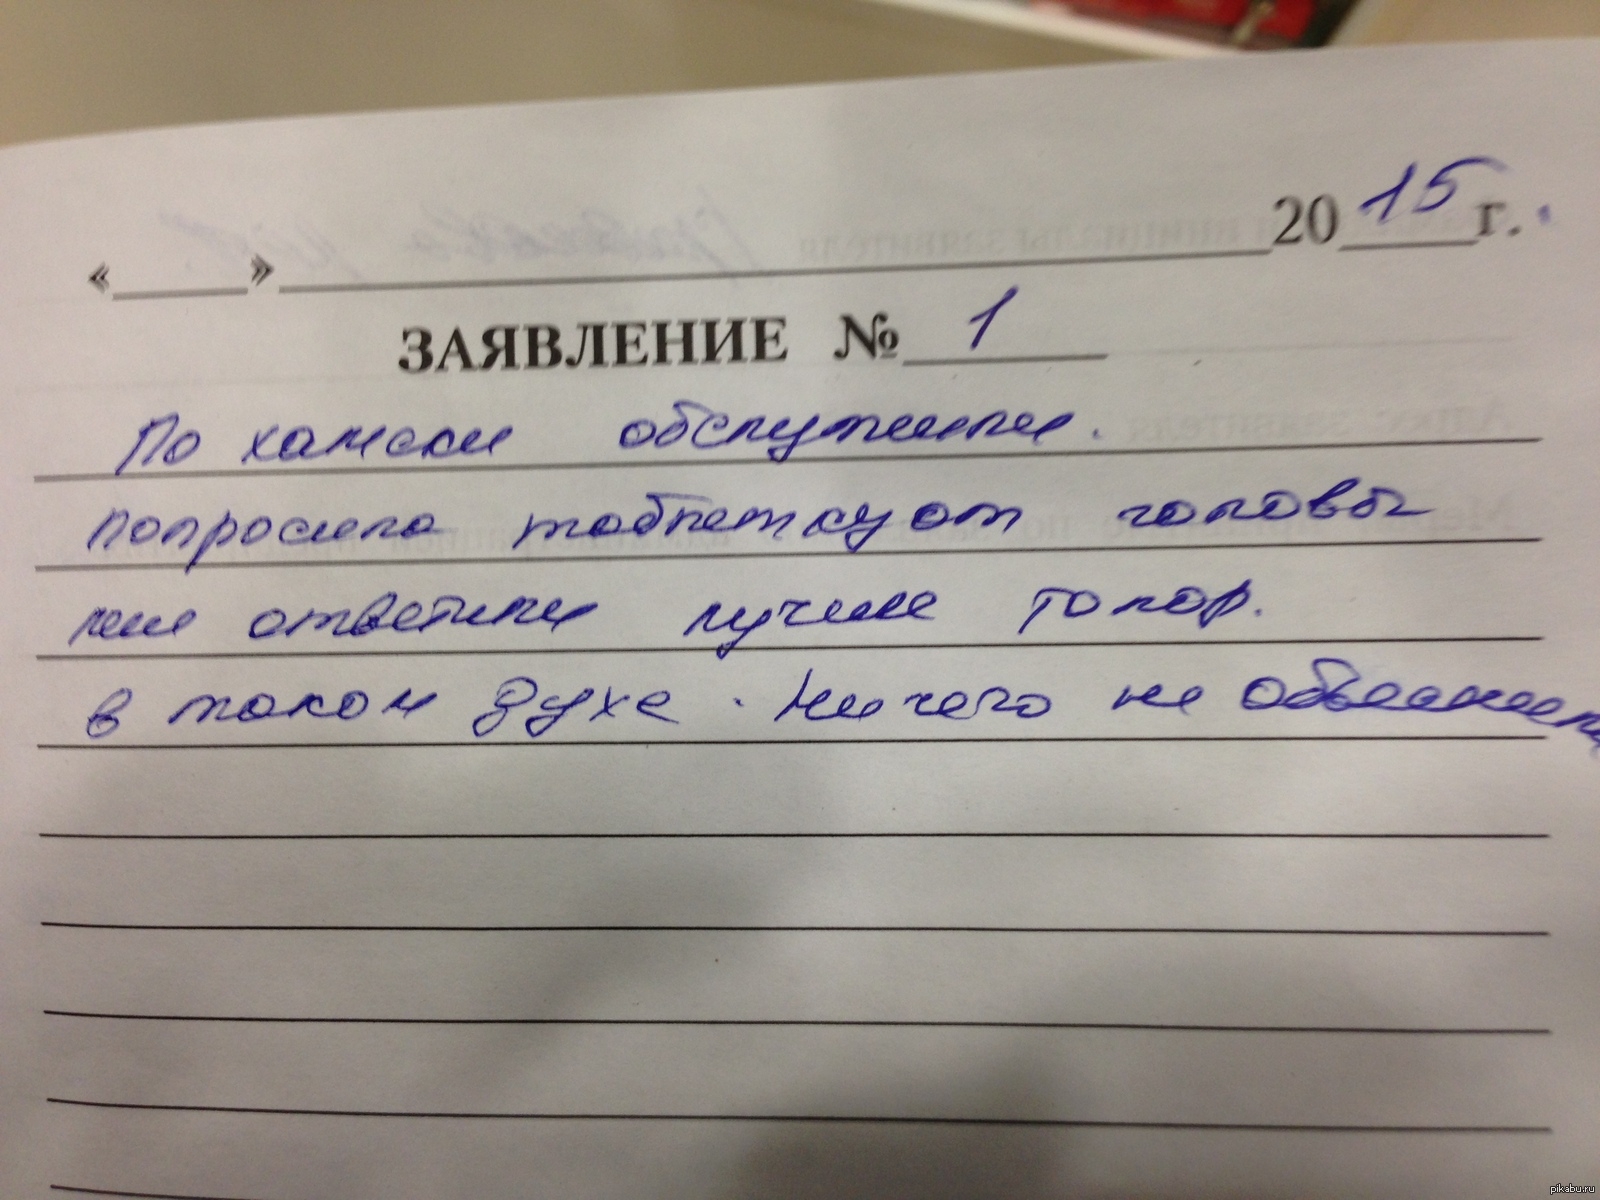 «____»____ 2015г.
ЗАЯВЛЕНИЕ № 1
По хамски обслужили.
попросила таблетку от головы
мне ответили лучше топор.
в таком духе. Ничего не объяснили
pikabu.ru